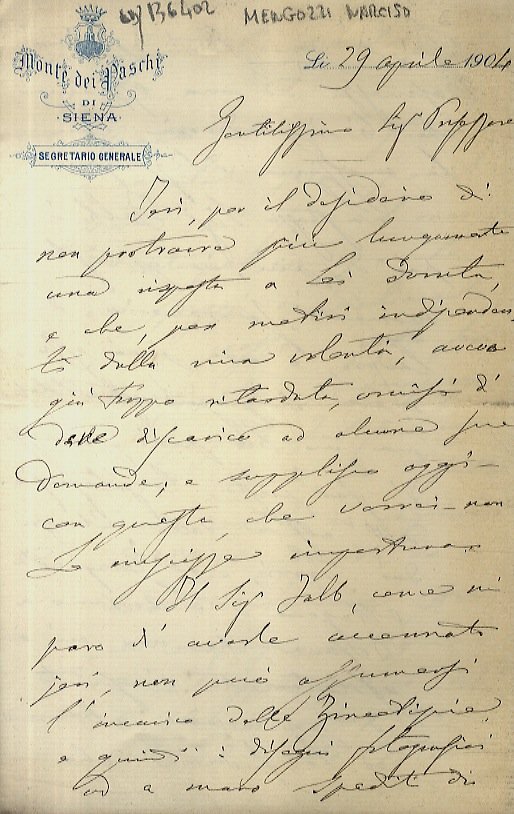 MENGOZZI NARCISO
Monte dei Paschi
DI
SIENA
SEGRETARIO GENERALE
Li 29 aprile 1904
Gentilissimo Sig. Professore
Ieri, per il desiderio di
non protrarre più lungamente
una risposta a Lei dovuta,
e che, per motivi indipenden-
ti dalla mia volontà, aveva
già troppo ritardata, omisi di
dare discarico ad alcune sue
domande; e supplisco oggi -
con questa, che vorrei - non
Le riuscisse importuna.
Il Sig.r, come mi
pare d'averle accennato
jeri, non può assumersi
l'incarico delle Zincotipie,
e quindi i disegni fotografici
od a mano spediti di